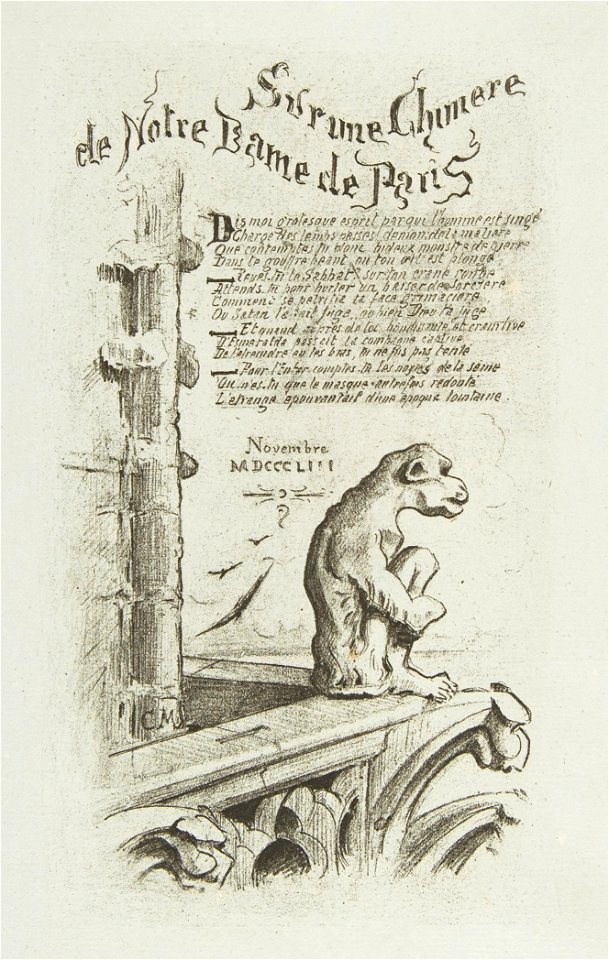 Sur une Chimere
de Notre Dame de Paris
Dis moi grotesque esprit par qui l'homme est singé
Charge des temps passes, demon de la matiere
Que contemples tu donc hideux monstre de pierre
Dans le gouffre beant ou ton œil est plongé
Sabbat & sur ton crane
Attends tu pour hurler un baiser de sorciere
Comment se petrifia ta face grimaciere
Ou Satan t'a fait ou bien Dieu t'a
Et quand aupres de toi, et craintive
D'Esmeralda passait la compagne captive
De l'etreindre en tes bras, tu ne fus pas tenté
Pour l'Enfer comptes tu les noyes de la seine
Ou n'es tu que le masque autrefois redouté
L'etrange epouvantail d'une epoque lointaine.
Novembre
MDCCCLIII
CM